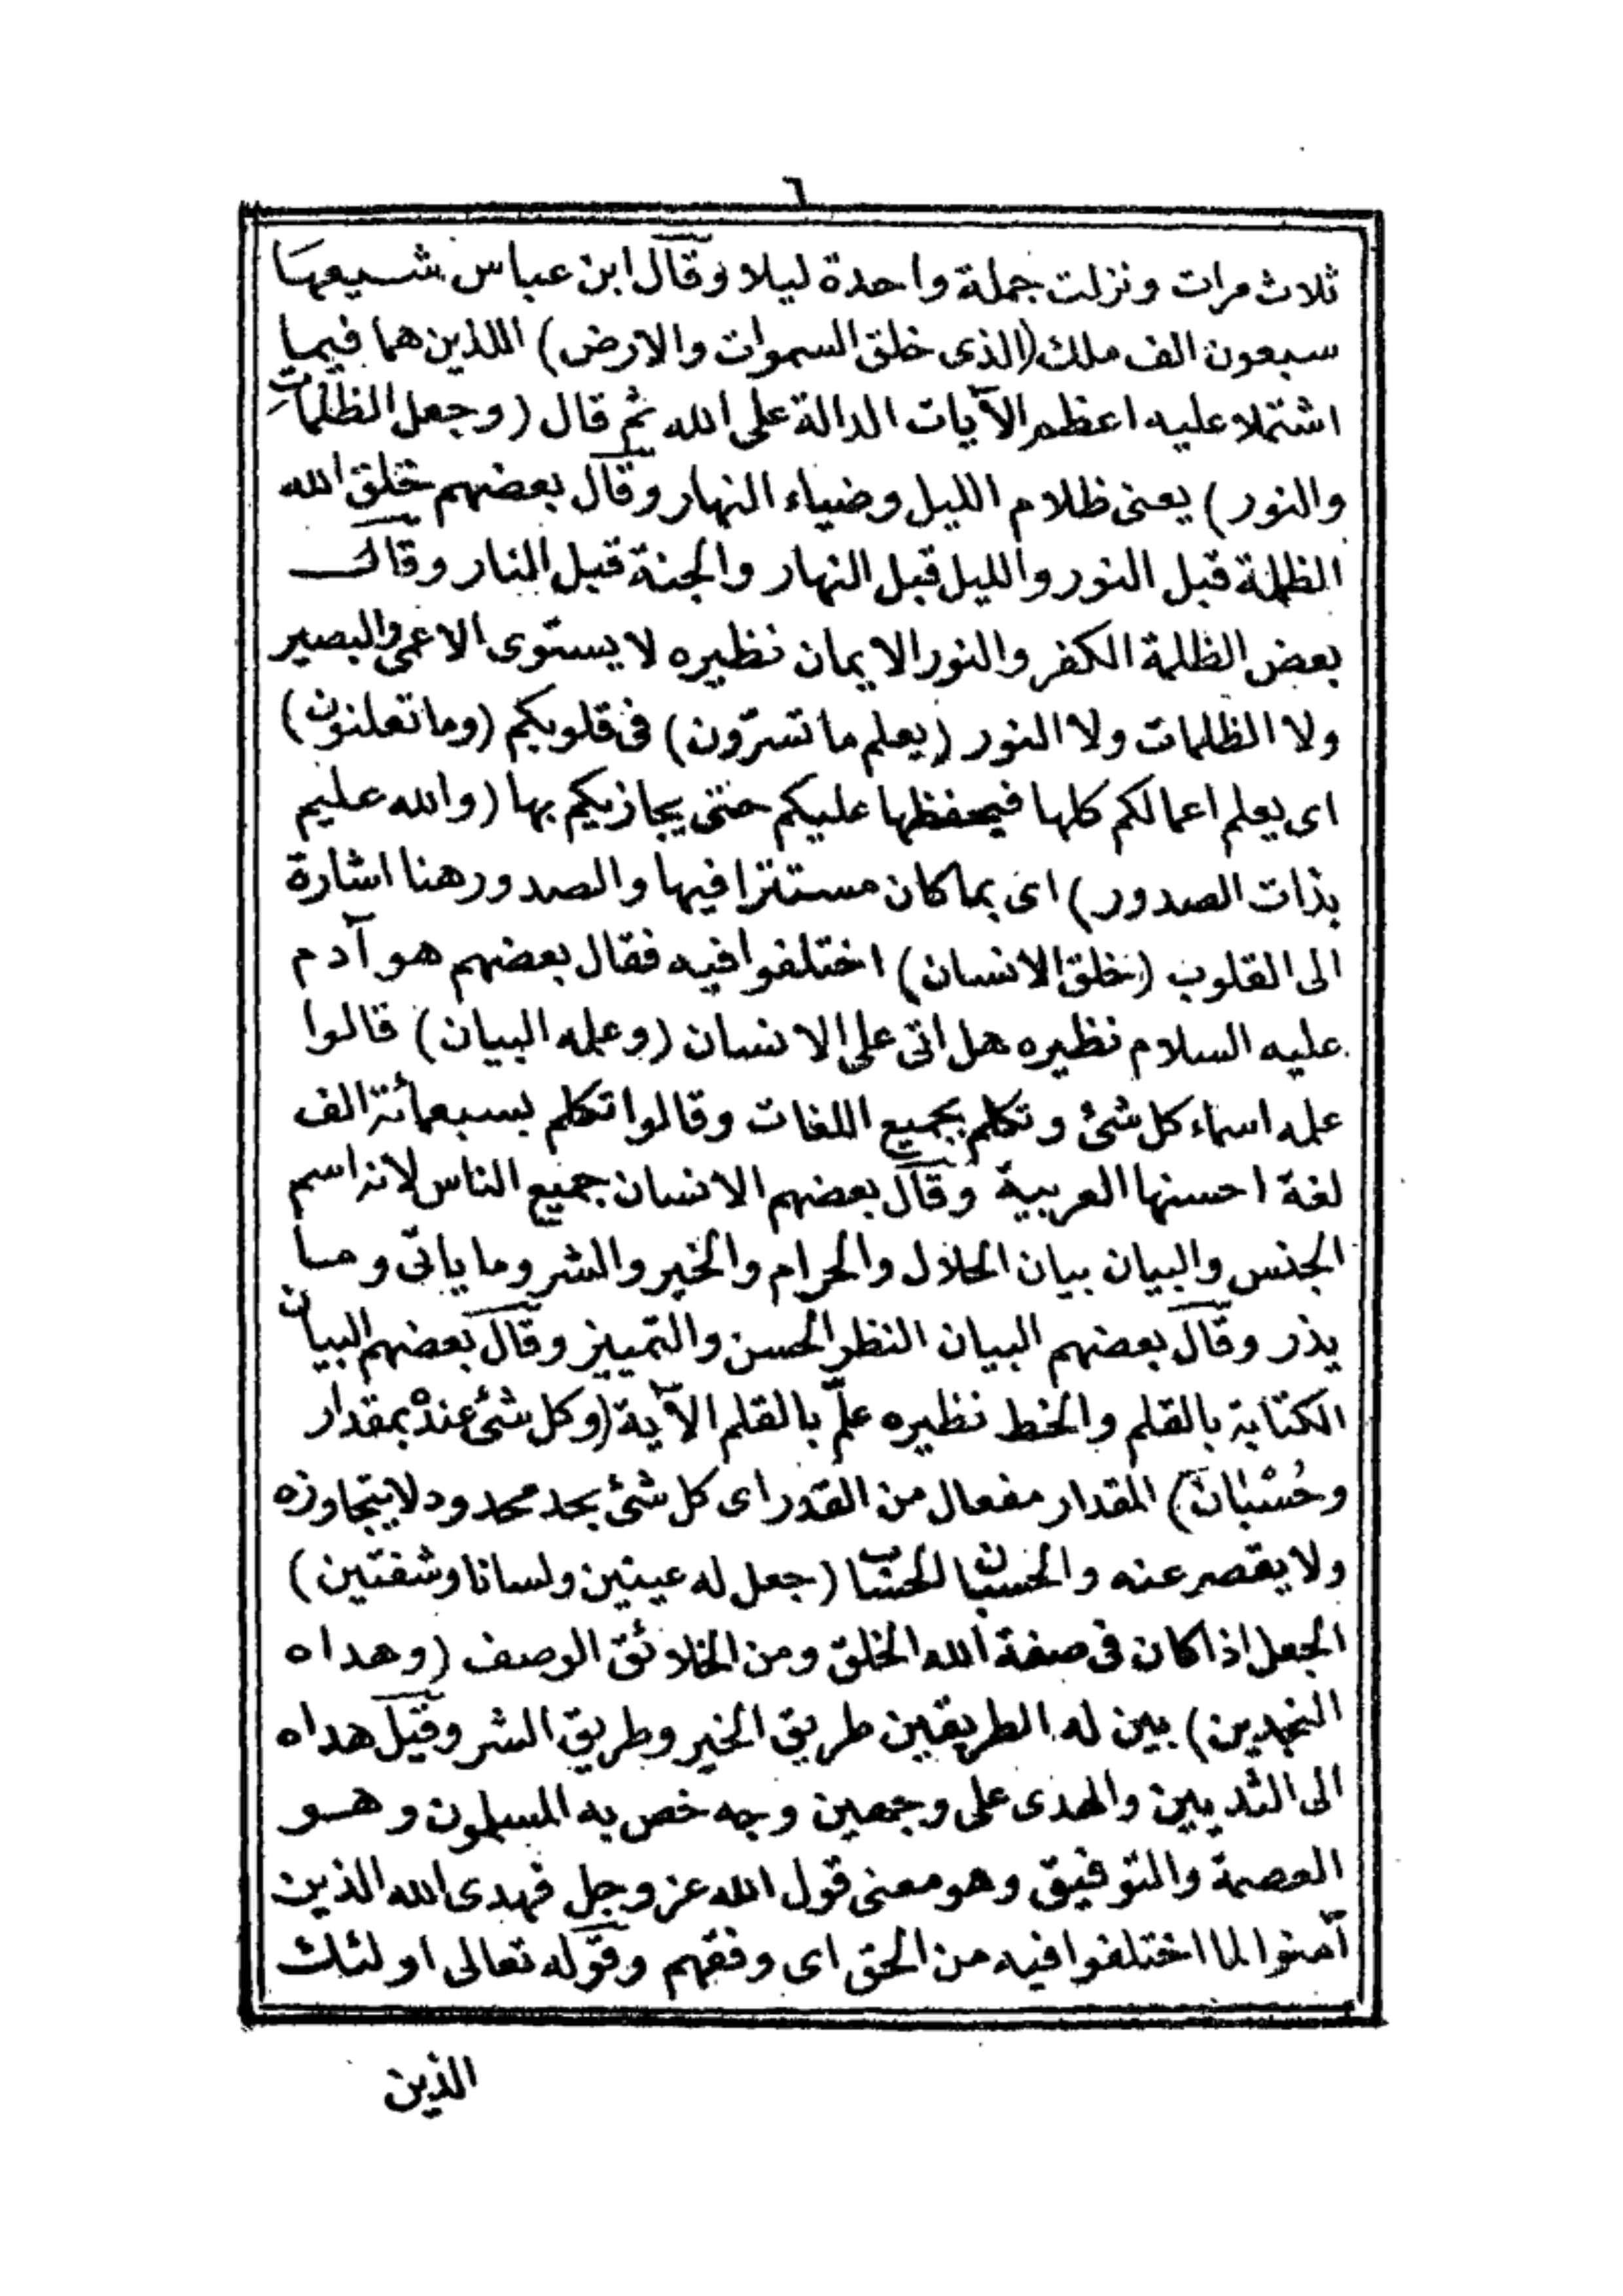 ٦
ثلاث مرات ونزلت جملة واحدة ليلا وقال ابن عباس شيعها
سبعون الف ملك (الذى خلق السموات والارض) اللذين هما فيما
اشتملا عليه اعظم الآيات الدالة على الله ثم قال (وجعل الظلمات
والنور) يعنى ظلام الليل وضياء النهار وقال بعضهم خلق الله
الظلمة قبل النور والليل قبل النهار والجنة قبل النار وقال
بعض الظلمة الكفر والنور الايمان نظيره لا يستوى الاعمى والبصير
ولا الظلمات ولا النور (يعلم ما تسرّون) فى قلوبكم (وما تعلنون)
اى يعلم اعمالكم كلها فيحفظها عليكم حتى يجازيكم بها (والله عليم
بذات الصدور) اى بما كان مستترا فيها والصدور هنا اشارة
الى القلوب (خلق الانسان) اختلفوا فيه فقال بعضهم هو آدم
عليه السلام نظيره هل اتى على الانسان (وعلمه البيان) قالوا
علمه اسماء كل شئ وتكلم بجميع اللغات وقالوا تكلم بسبعمائة الف
لغة احسنها العربية وقال بعضهم الانسان جميع الناس لانه اسم
الجنس والبيان بيان الحلال والحرام والخير والشر وما ياتى وما
يذر وقال بعضهم البيان النظر الحسن والتمييز وقال بعضهم البيان
الكتابة بالقلم والخط نظيره علّم بالقلم الآية (وكل شئ عنده بمقدار
وحُسْبان) المقدار مفعال من القدر اى كل شئ بحد محدود لا يتجاوزه
ولا يقصر عنه والحسبان الحساب (جعل له عينين ولسانا وشفتين)
الجعل اذا كان فى صفة الله الخلق ومن الخلائق الوصف (وهداه
النجدين) بين له الطريقين طريق الخير وطريق الشر وقيل هداه
الى الثديين والهدى على وجهين وجه خص به المسلمون وهو
العصمة والتوفيق وهو معنى قول الله عز وجل فهدى الله الذين
آمنوا لما اختلفوا فيه من الحق اى وفقهم وقوله تعالى اولئك
الذين